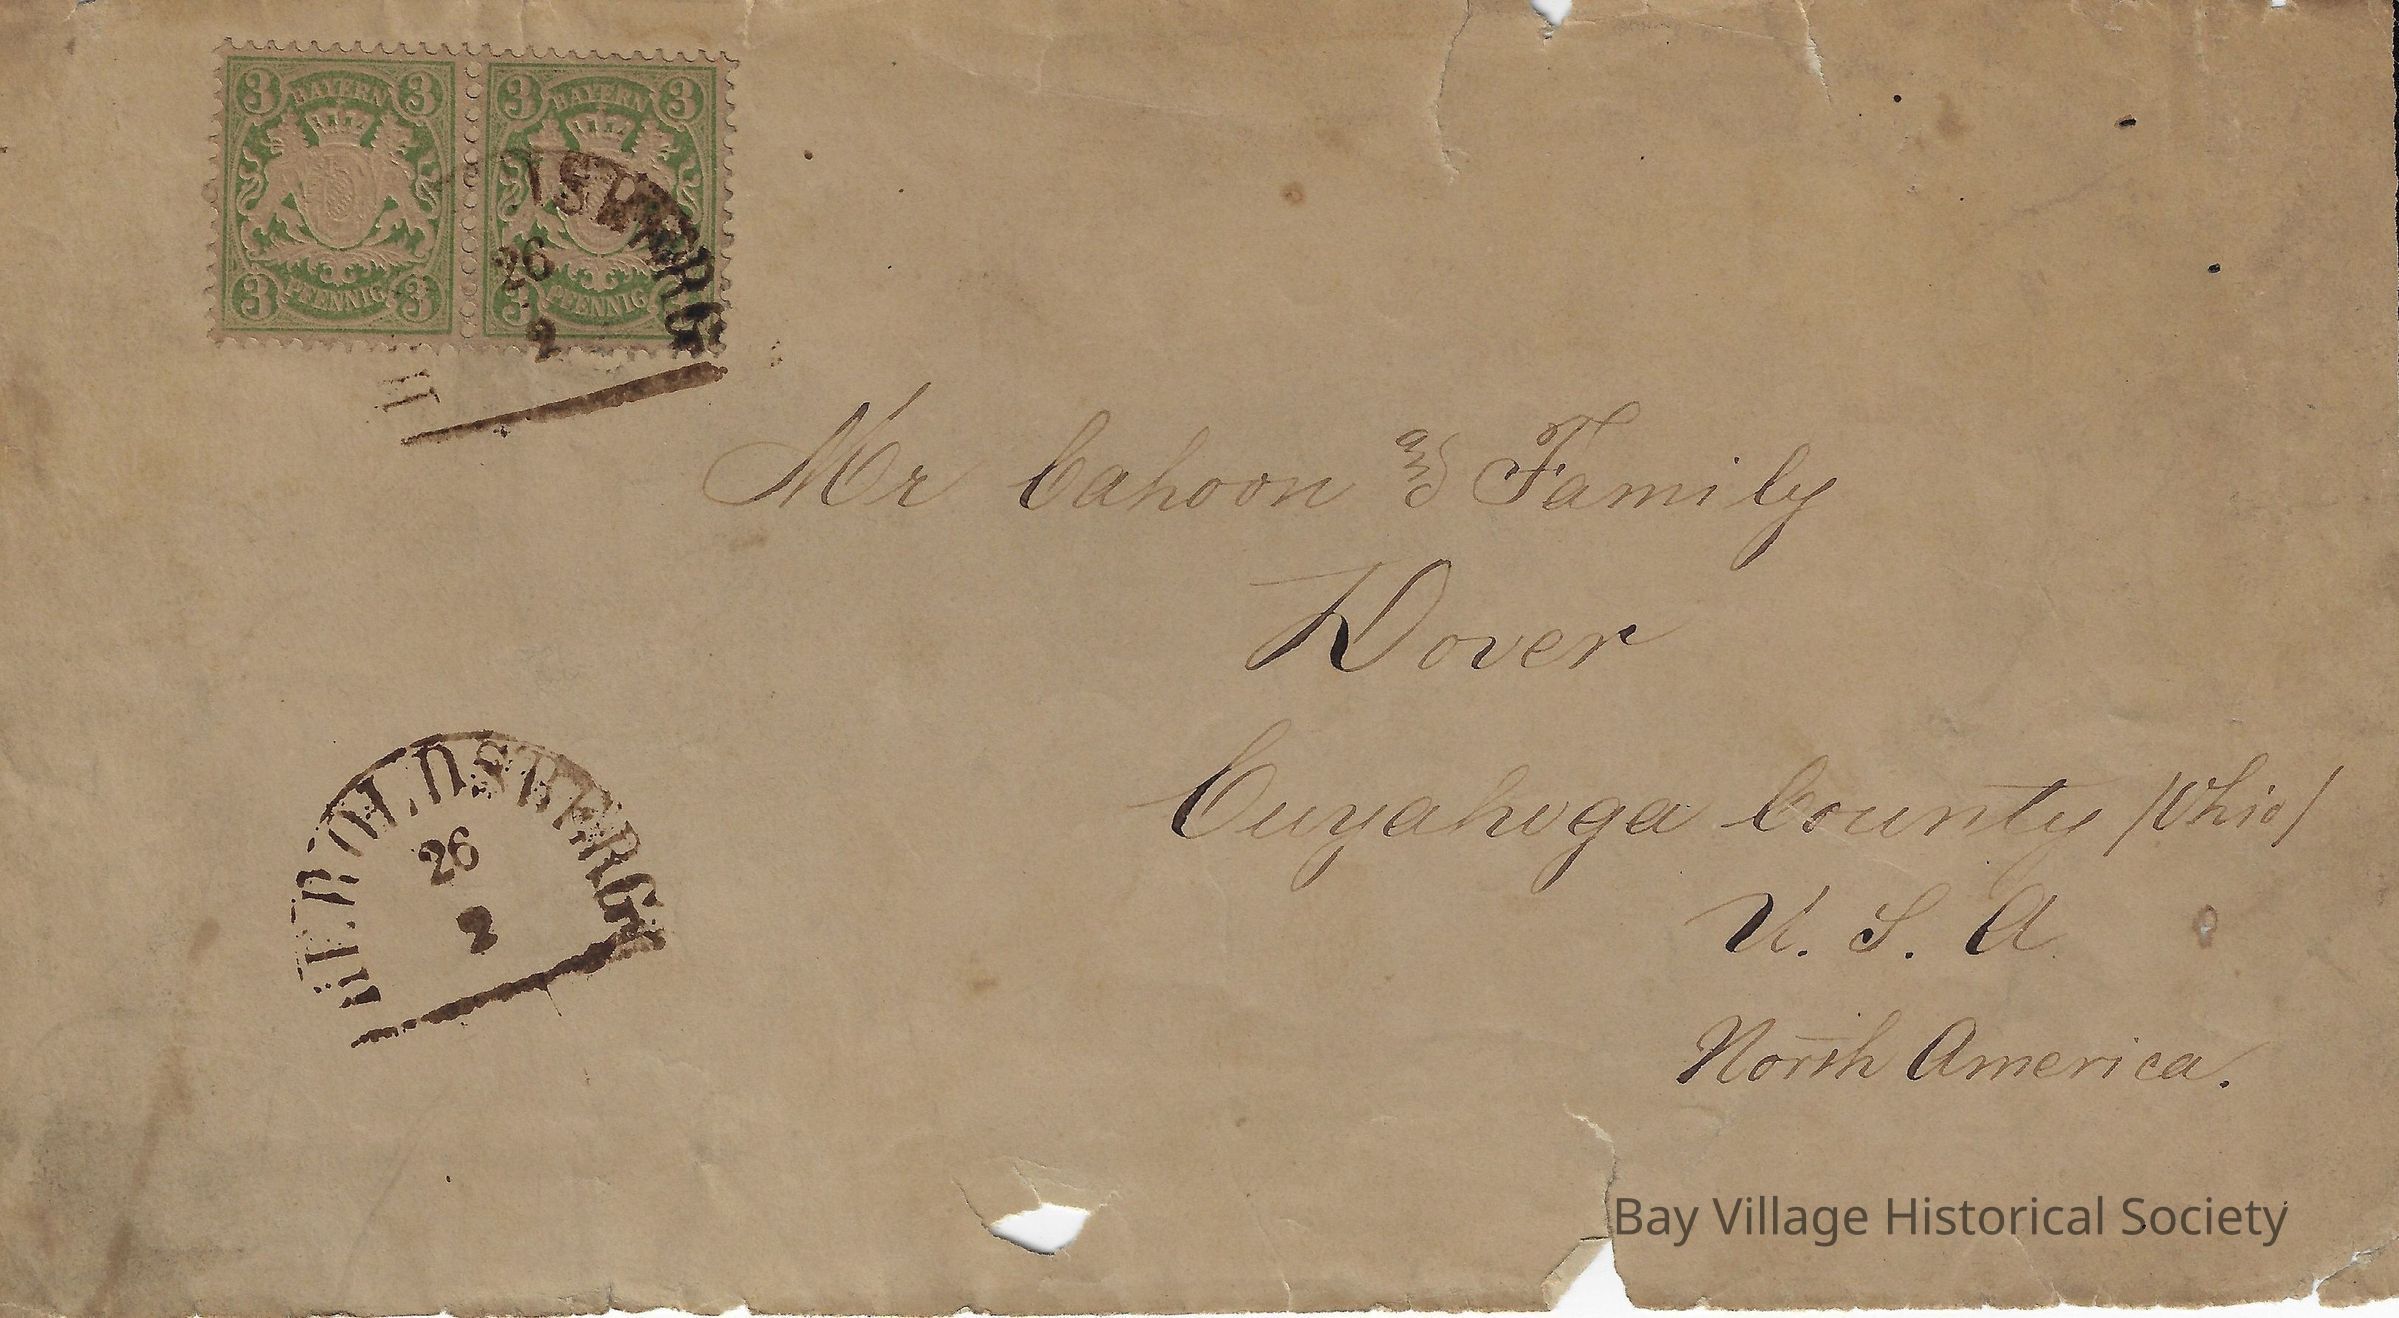 3 BAYERN 3
3 PFENNIG 3
3 BAYERN 3
3 PFENNIG
26
2
Mr Cahoon and Family
Dover
Cuyahoga County (Ohio)
U. S. A
North America.
HEROLDSBERG
26
2
Bay Village Historical Society